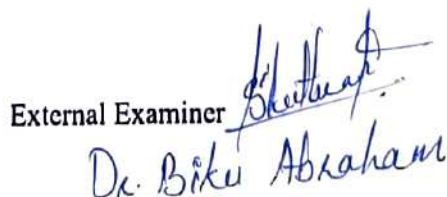 External Examiner
Dr. Biku Abraham